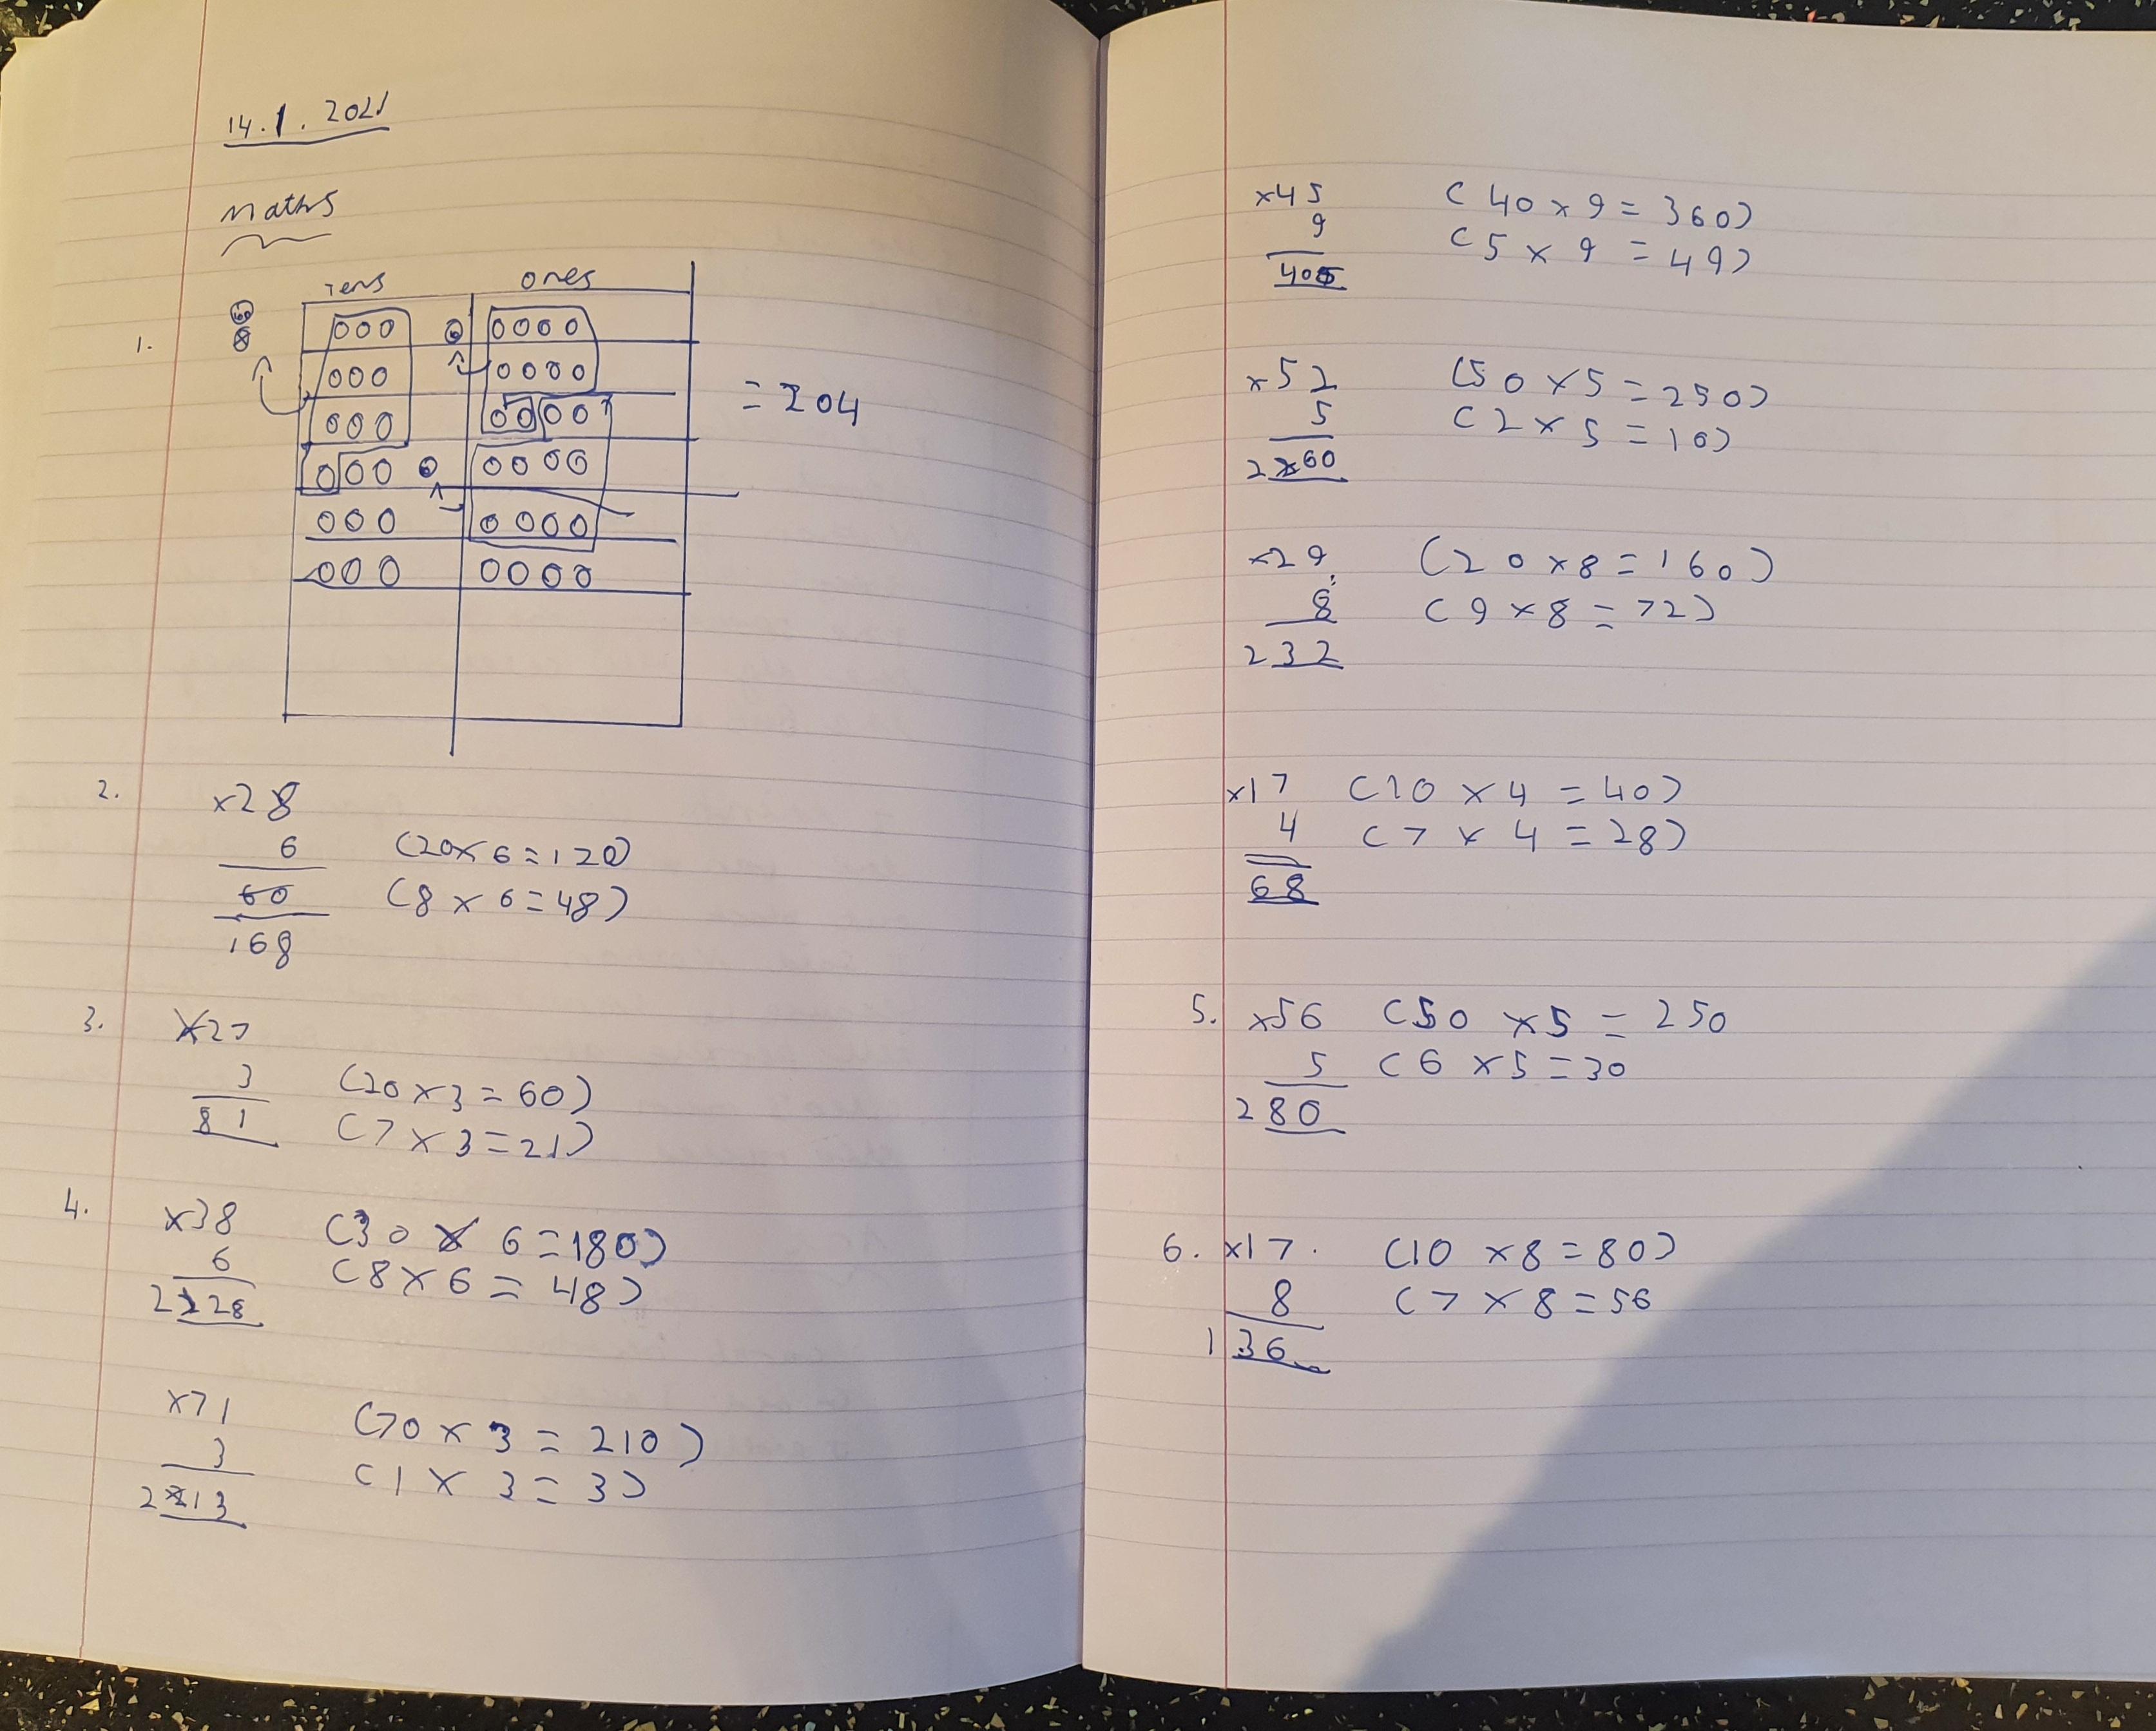 14.1.2021
Maths
Tens ones
1.
000 0000
000 0000
000 0000
000 0000
000 0000
000 0000
= 204
2. ×28
6 (20×6=120)
60 (8×6=48)
168
3. ×27
3 (20×3=60)
81 (7×3=21)
4. ×38 (30×6=180)
6 (8×6=48)
228
×71 (70×3=210)
3 (1×3=3)
213
×45 (40×9=360)
9 (5×9=49)
405
×52 (50×5=250)
5 (2×5=10)
260
×29 (20×8=160)
8 (9×8=72)
232
×17 (10×4=40)
4 (7×4=28)
68
5. ×56 (50×5=250
5 (6×5=30
280
6. ×17. (10×8=80)
8 (7×8=56
136